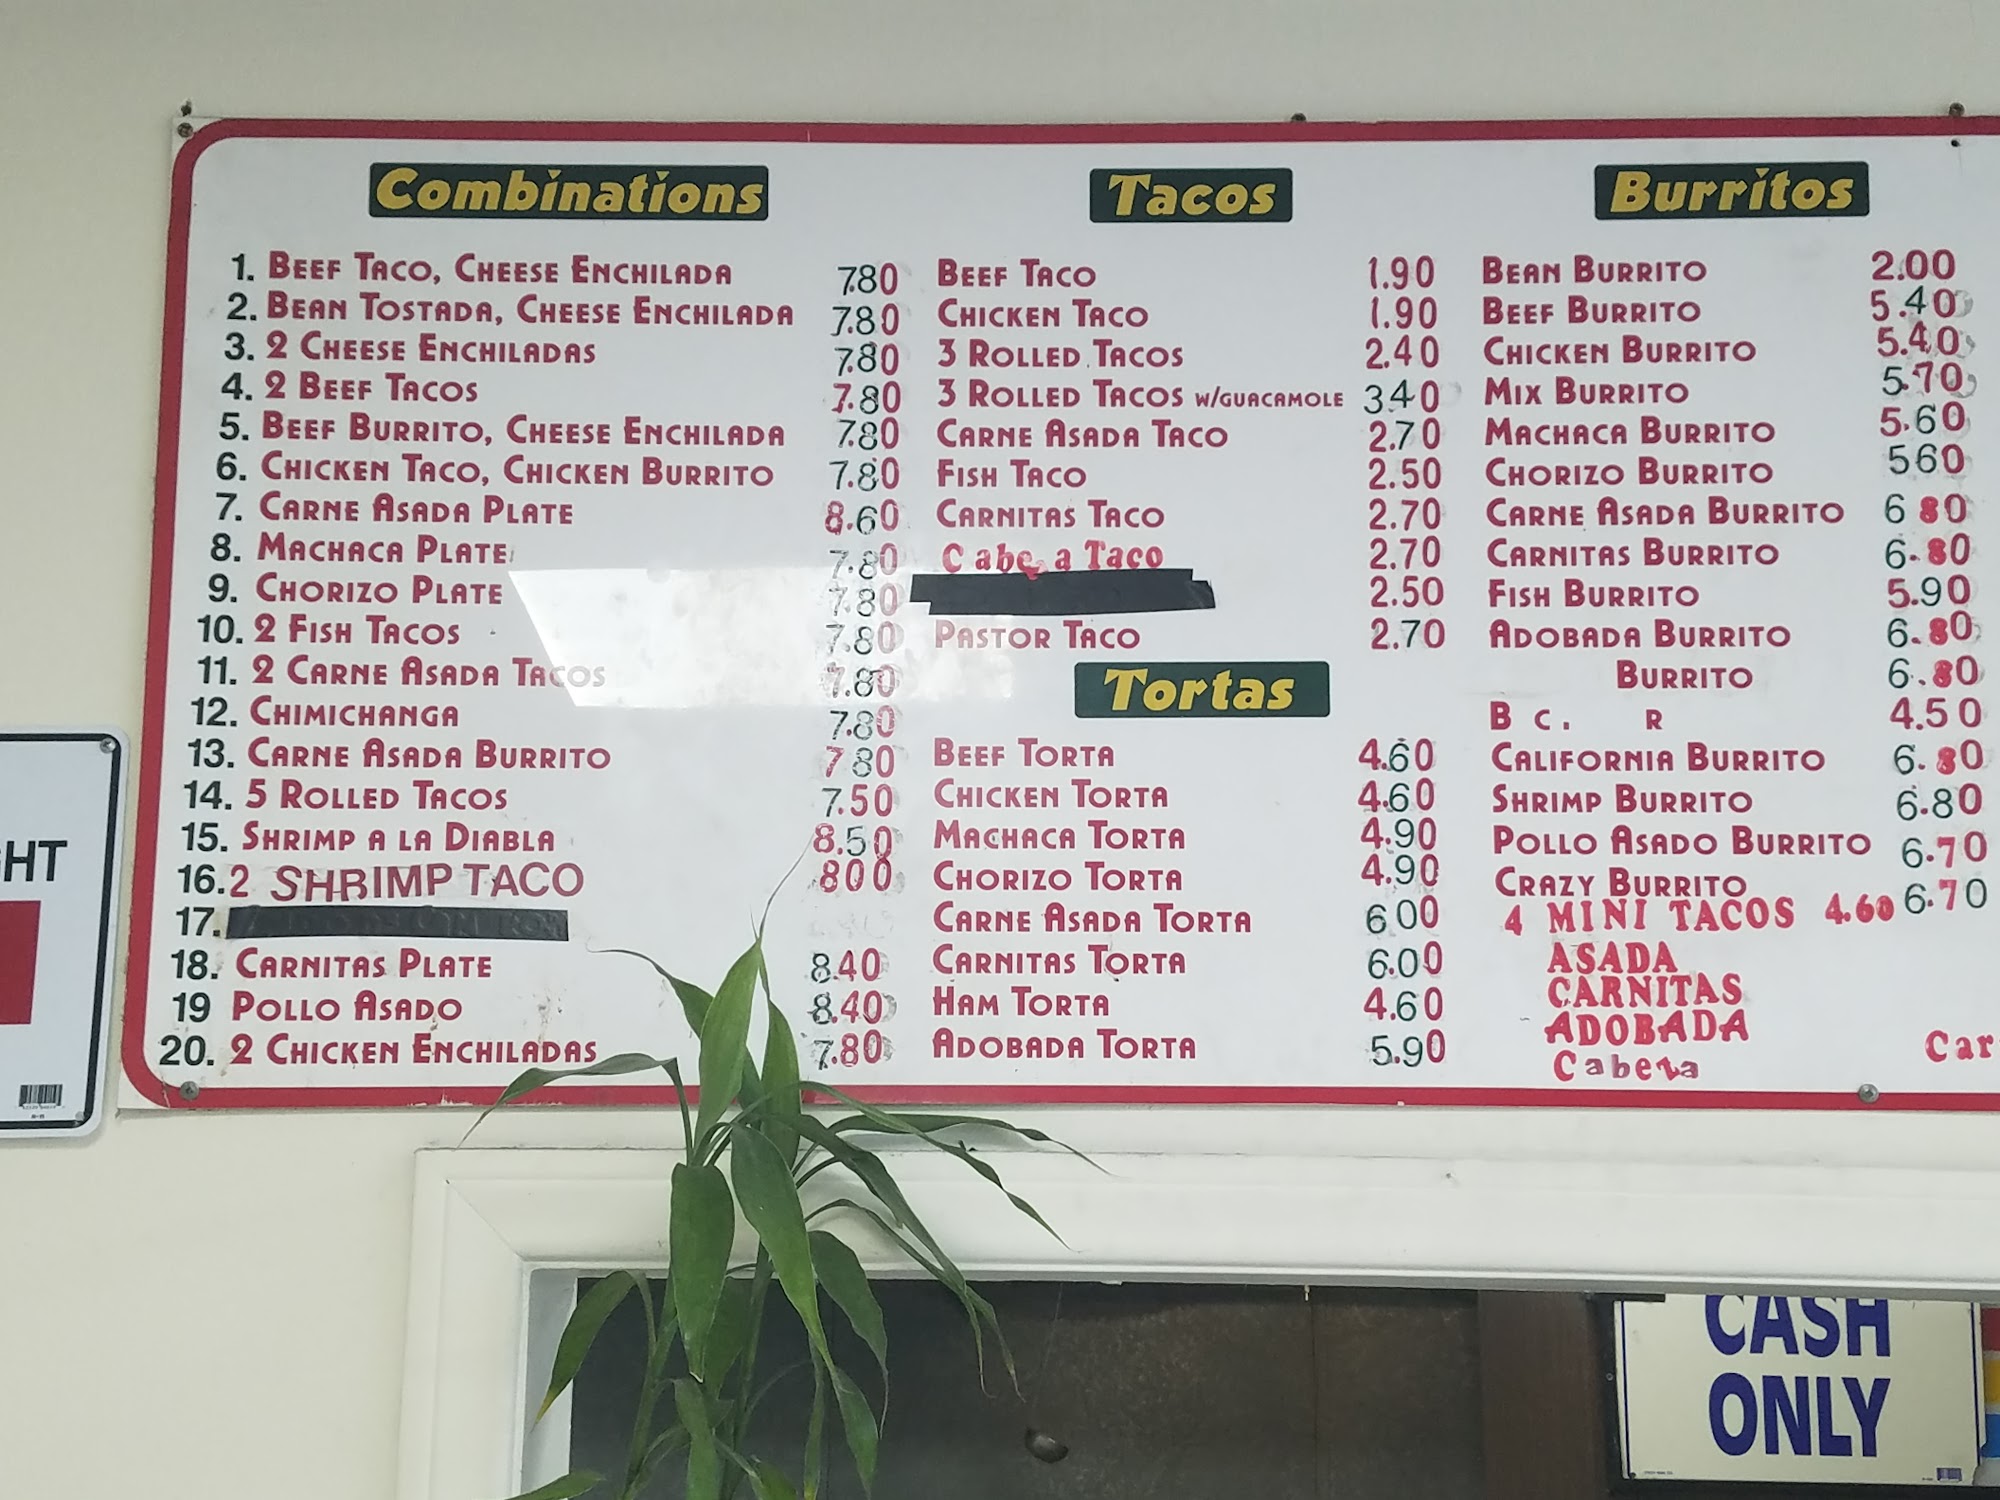 Combinations
1. BEEF TACO, CHEESE ENCHILADA 7.80
2. BEAN TOSTADA, CHEESE ENCHILADA 7.80
3. 2 CHEESE ENCHILADAS 7.80
4. 2 BEEF TACOS 7.80
5. BEEF BURRITO, CHEESE ENCHILADA 7.80
6. CHICKEN TACO, CHICKEN BURRITO 7.80
7. CARNE ASADA PLATE 8.60
8. MACHACA PLATE 7.80
9. CHORIZO PLATE 7.80
10. 2 FISH TACOS 7.80
11. 2 CARNE ASADA TACOS 7.80
12. CHIMICHANGA 7.80
13. CARNE ASADA BURRITO 7 80
14. 5 ROLLED TACOS 7.50
15. SHRIMP A LA DIABLA 8.50
16. 2 SHRIMP TACO 800
17.
18. CARNITAS PLATE 8.40
19 POLLO ASADO 8.40
20. 2 CHICKEN ENCHILADAS 7.80
Tacos
BEEF TACO 1.90
CHICKEN TACO 1.90
3 ROLLED TACOS 2.40
3 ROLLED TACOS W/GUACAMOLE 340
CARNE ASADA TACO 2.70
FISH TACO 2.50
CARNITAS TACO 2.70
Cabeza Taco 2.70
2.50
PASTOR TACO 2.70
Tortas
BEEF TORTA 4.60
CHICKEN TORTA 4.60
MACHACA TORTA 4.90
CHORIZO TORTA 4.90
CARNE ASADA TORTA 6.00
CARNITAS TORTA 6.00
HAM TORTA 4.60
ADOBADA TORTA 5.90
Burritos
BEAN BURRITO 2.00
BEEF BURRITO 5.40
CHICKEN BURRITO 5.40
MIX BURRITO 5.70
MACHACA BURRITO 5.60
CHORIZO BURRITO 560
CARNE ASADA BURRITO 6 80
CARNITAS BURRITO 6.80
FISH BURRITO 5.90
ADOBADA BURRITO 6.80
BURRITO 6.80
B C. R 4.50
CALIFORNIA BURRITO 6.80
SHRIMP BURRITO 6.80
POLLO ASADO BURRITO 6.70
CRAZY BURRITO 6.70
4 MINI TACOS 4.60
ASADA
CARNITAS
ADOBADA
Cabeza
Car
GHT
CASH
ONLY